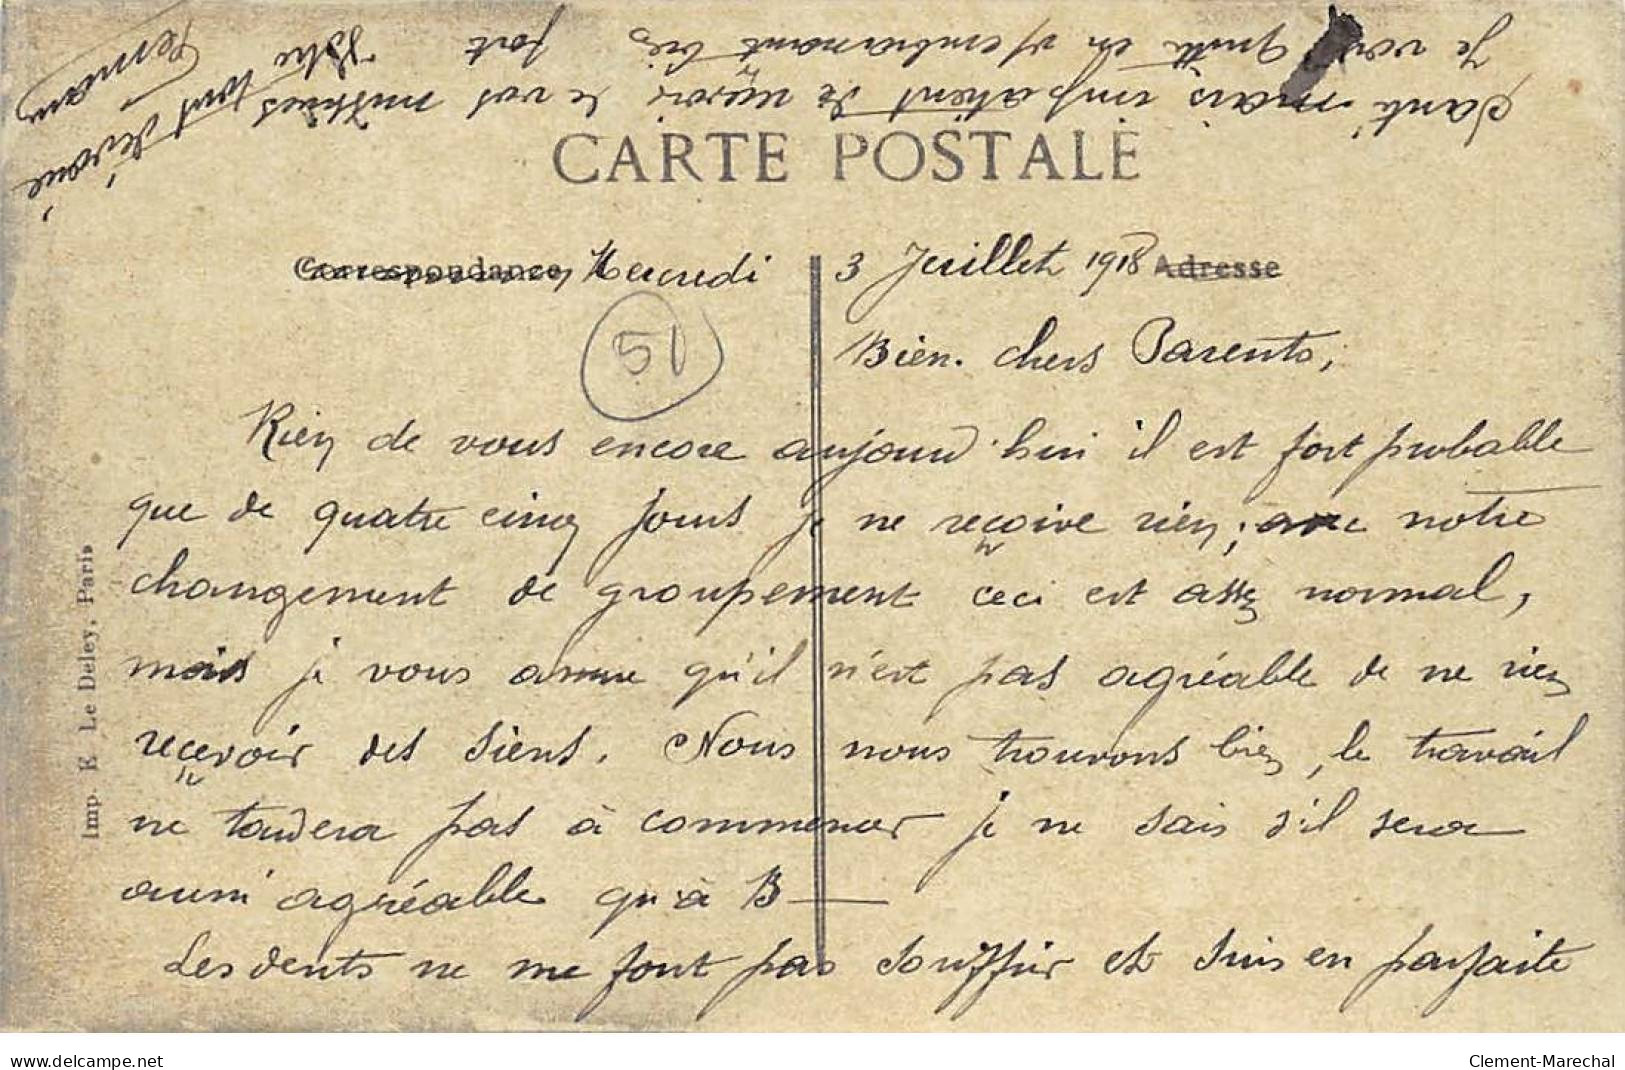 CARTE POSTALE
Correspondance, Mercredi 3 Juillet 1918 Adresse
51
Bien chers Parents,
Rien de vous encore aujourd'hui il est fort probable
que de quatre cinq jours je ne reçoive rien; avec notre
changement de groupement ceci est assez normal,
mais je vous assure qu'il n'est pas agréable de ne rien
reçevoir des siens. Nous nous trouvons bien, le travail
ne tardera pas à commencer je ne sais s'il sera
aussi agréable qu'à B—
Les dents ne me font pas souffrir et suis en parfaite
santé mais impatient de reçevoir de vos nouvelles
Je vous quitte en vs embrassant bien fort
Votre tout dévoué
Germain
Imp. E. Le Deley, Paris
www.delcampe.net
Clement-Marechal